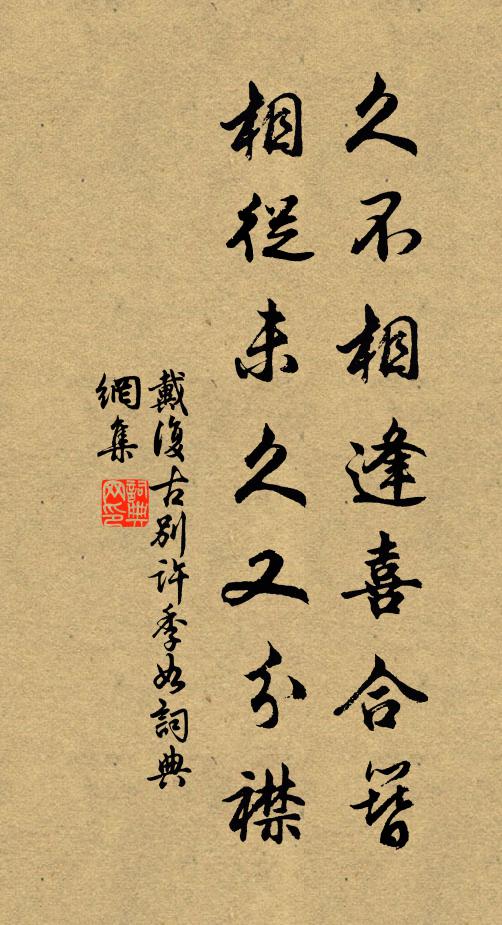 久不相逢喜合簪
相從未久又分襟
戴復古別許季如詞典
網集
詞典網印